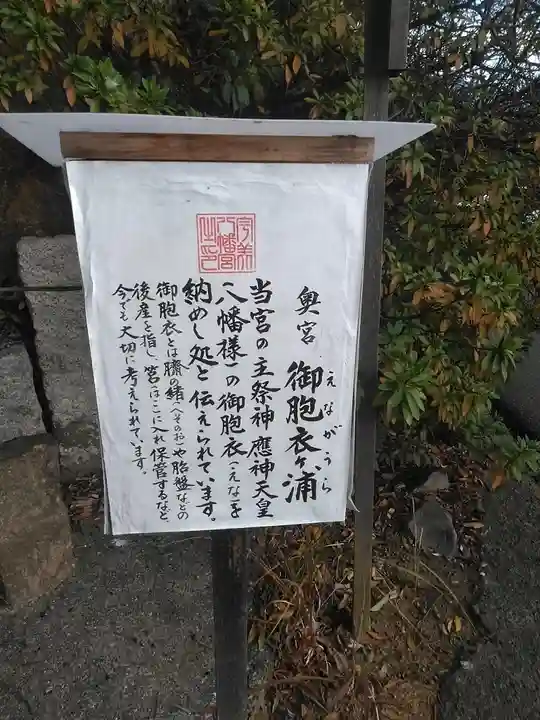 宇美
八幡宮
之印
奥宮 御胞衣ヶ浦
えながうら
当宮の主祭神應神天皇
(八幡様)の御胞衣(えな)を
納めし処と伝えられています。
御胞衣とは臍の緒(へそのお)や胎盤などの
後産を指し、筥(はこ)に入れ保管するなど、
今でも大切に考えられています。